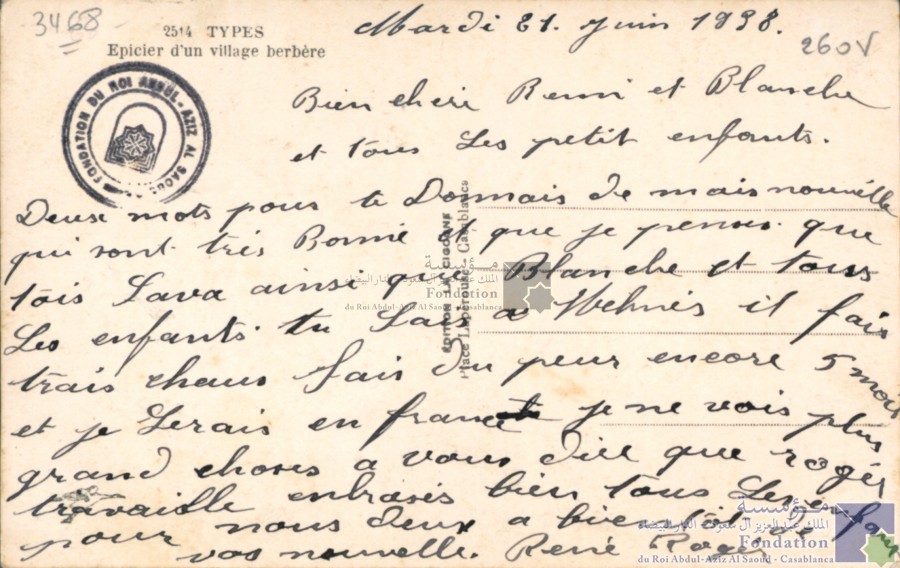 3468
2514 TYPES
Epicier d'un village berbère
Mardi 21. juin 1938.
260V
FONDATION DU ROI ABDUL-AZIZ AL SAOUD
Bien chere Remi et Blanche
et tous Les petit enfants.
Deux mots pour te Donnais de mais nouvelle
qui sont très Bonne et que je pense que
tois Sava ainsi que Blanche et tous
Les enfants. tu Sais a Meknés il fais
trais chaus sais du peur encore 5 mois
et je Serais en france je ne vois plus
grand choses a vous dire que rogér
travaille enbrasés bien tous Les enfans
pour nous deux a bientôt
vos nouvelle. René Roger
EDITION LA CIGOGNE
Place Lapérouse - Casablanca
مؤسسة
الملك عبد العزيز آل سعود، الدار البيضاء
Fondation
du Roi Abdul-Aziz Al Saoud - Casablanca
مؤسسة
الملك عبد العزيز آل سعود، الدار البيضاء
Fondation
du Roi Abdul-Aziz Al Saoud - Casablanca